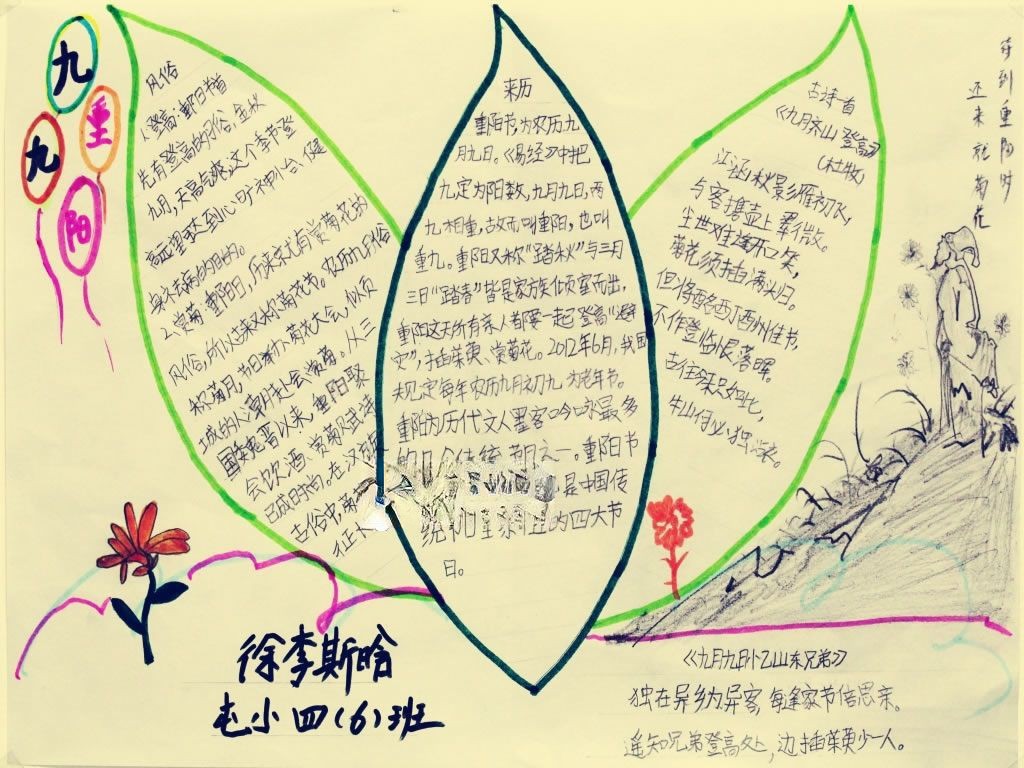 九
九
重
阳
风俗
1.登高:重阳节首
先有登高的习俗,金秋
九月,天高气爽,这个季节登
高远望可达到心旷神怡、健
身祛病的目的。
2.赏菊 重阳日,历来就有赏菊花的
风俗,所以古来又称菊花节。农历九月俗
称菊月,节日举办菊花大会,倾
城的人潮赴会赏菊。从三
国魏晋以来,重阳聚
会饮酒、赏菊赋诗
已成时尚。在汉族
古俗中,菊
征长
来历
重阳节,为农历九
月九日。《易经》中把
九定为阳数,九月九日,两
九相重,故而叫重阳,也叫
重九。重阳又称“踏秋”与三月
三日“踏春”皆是家族倾室而出,
重阳这天所有亲人都要一起登高“避
灾”,插茱萸、赏菊花。2012年6月,我国
规定每年农历九月初九为老年节。
重阳为历代文人墨客吟咏最多
的几个传统节日之一。重阳节
是中国传
统 的四大节
日。
古诗一首
《九月齐山登高》
(杜牧)
江涵秋影雁初飞,
与客携壶上翠微。
尘世难逢开口笑,
菊花须插满头归。
但将酩酊酬佳节,
不作登临恨落晖。
古往今来只如此,
牛山何必独沾衣。
待到重阳时
还来就菊花
徐李斯晗
屯小四(6)班
《九月九日忆山东兄弟》
独在异乡为异客,每逢家节倍思亲。
遥知兄弟登高处,边插茱萸少一人。